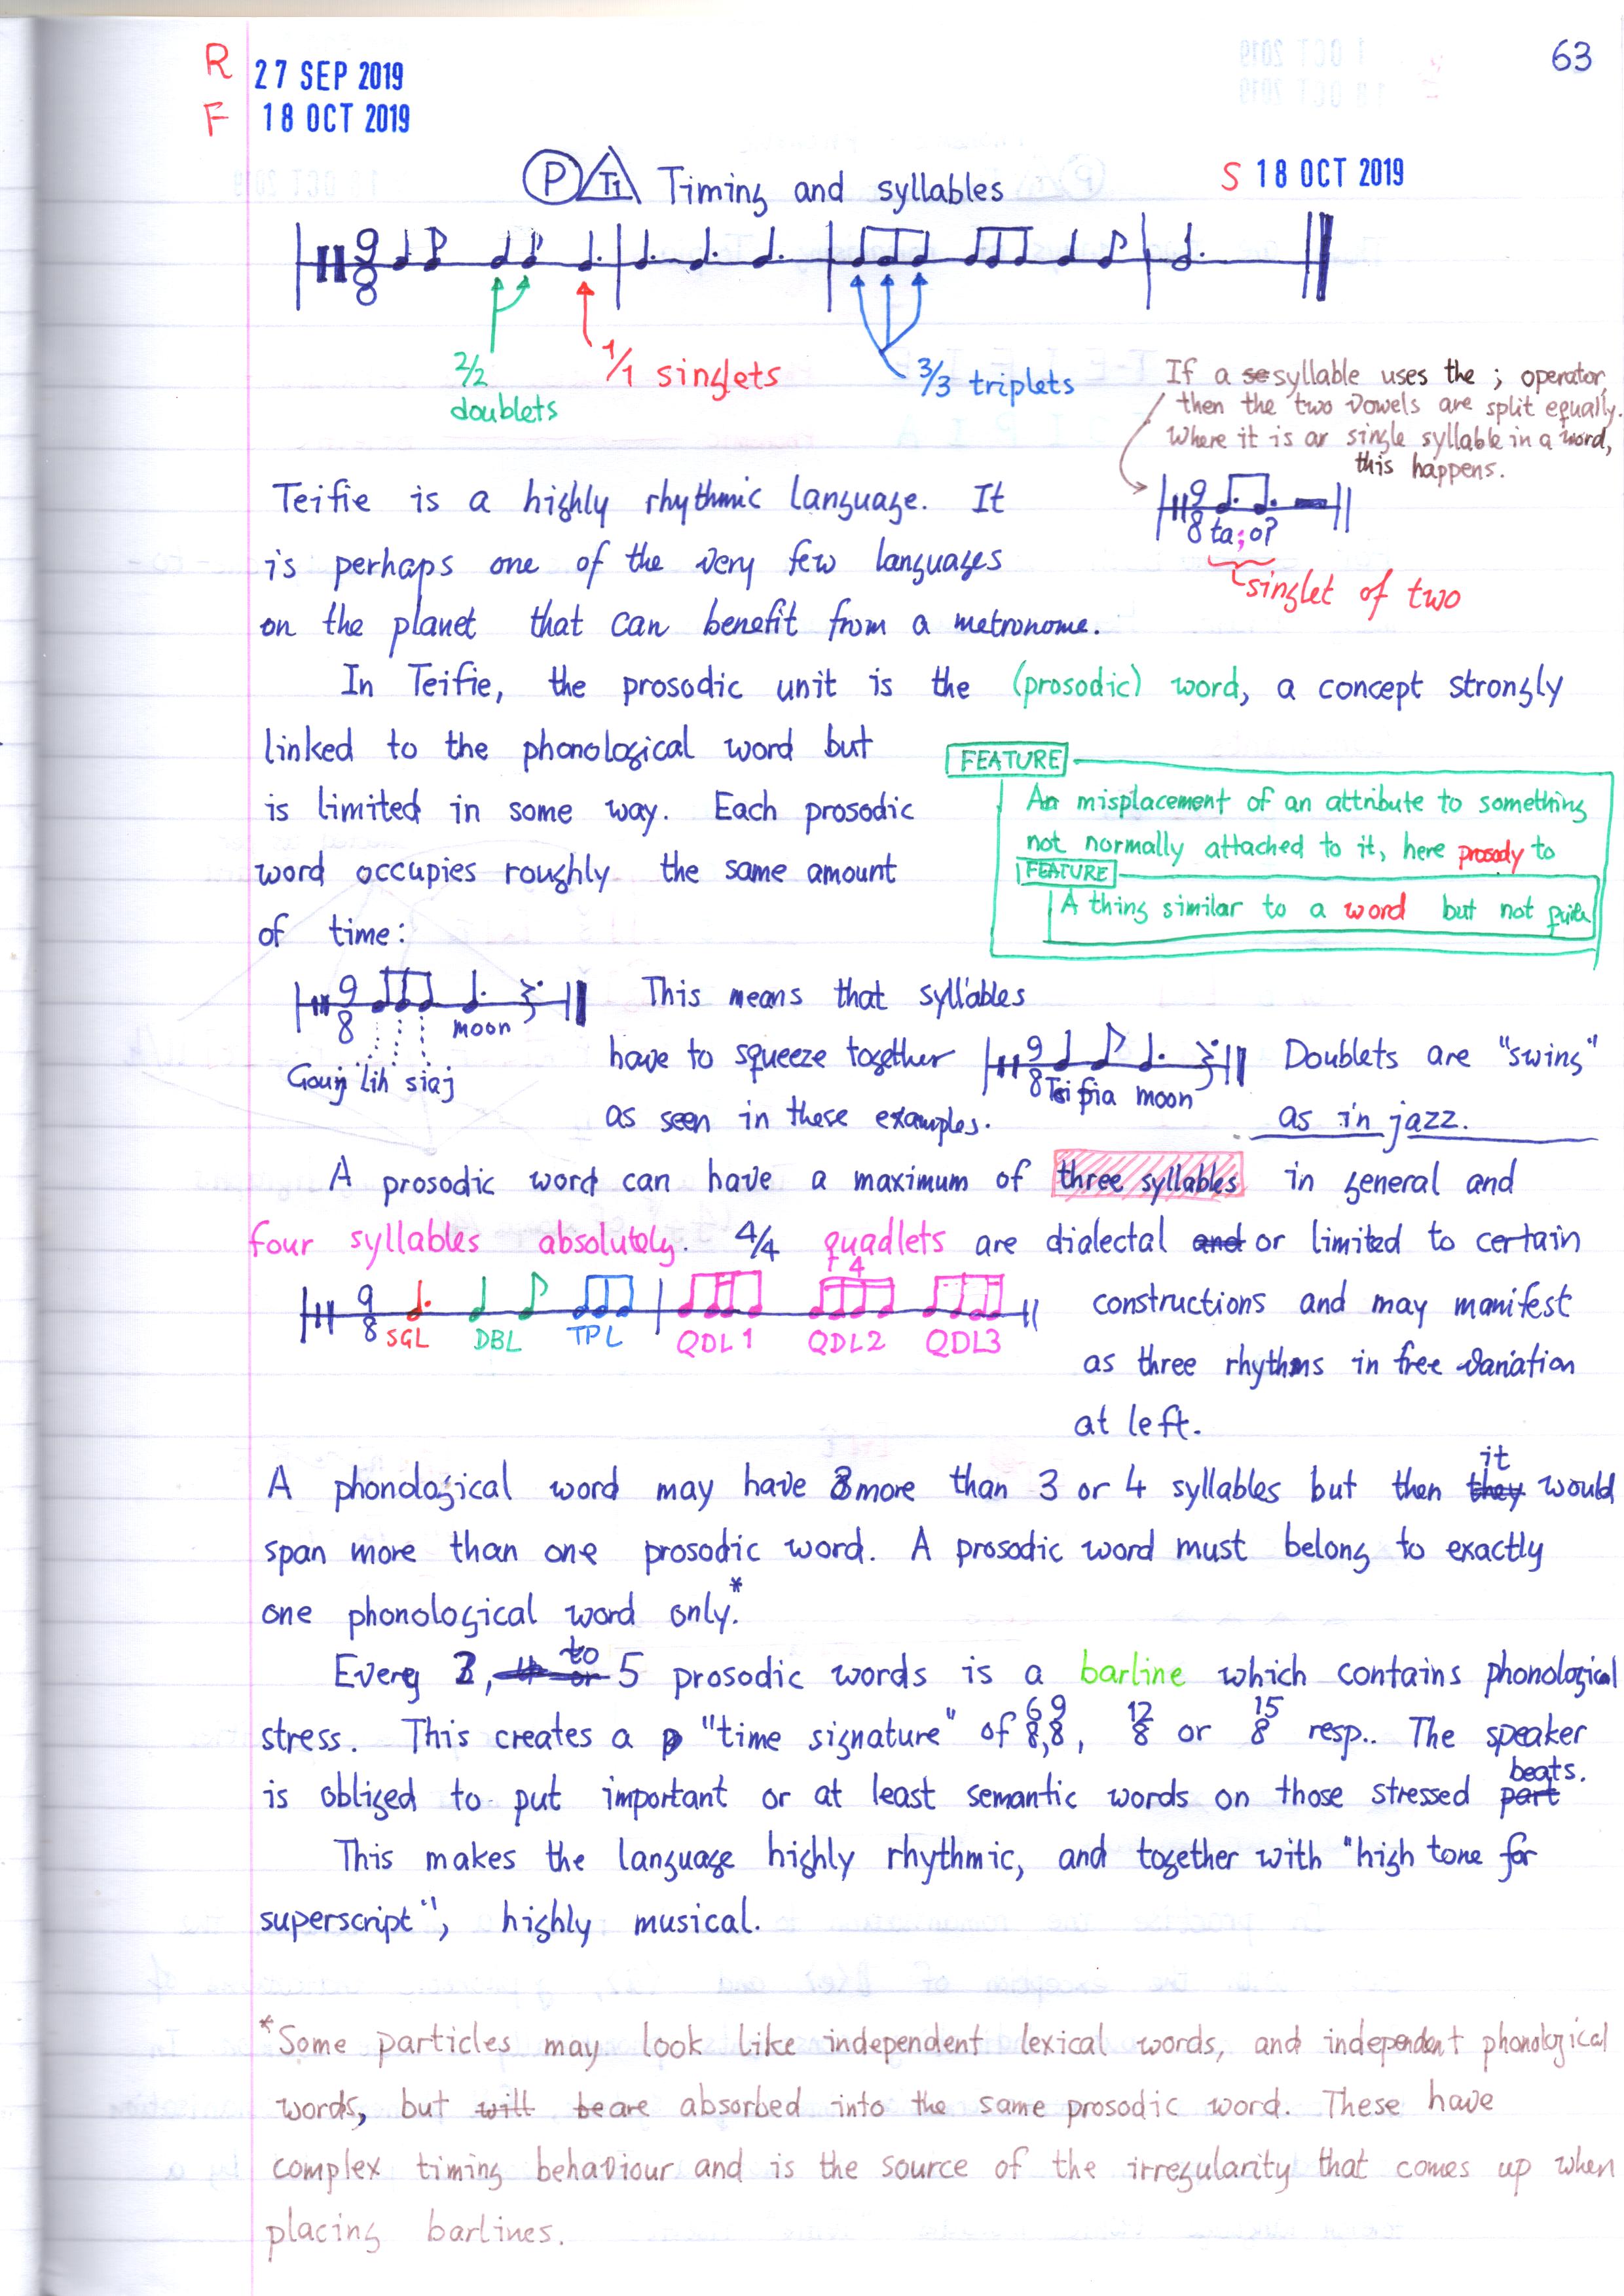 63
R 27 SEP 2019
F 18 OCT 2019
P T1 Timing and syllables
S 18 OCT 2019
9
8
2/2
doublets
1/1 singlets
3/3 triplets
If a syllable uses the ; operator,
then the two vowels are split equally.
Where it is a single syllable in a word,
this happens.
9
8 ta;o?
singlet of two
Teifie is a highly rhythmic language. It
is perhaps one of the very few languages
on the planet that can benefit from a metronome.
In Teifie, the prosodic unit is the (prosodic) word, a concept strongly
linked to the phonological word but
is limited in some way. Each prosodic
word occupies roughly the same amount
of time:
FEATURE
An misplacement of an attribute to something
not normally attached to it, here prosody to
FEATURE
A thing similar to a word but not quite
9
8
moon
lih siaj
This means that syllables
have to squeeze together
as seen in these examples.
9
8 Teifia moon
Doublets are "swing"
as in jazz.
A prosodic word can have a maximum of three syllables in general and
four syllables absolutely. 4/4 quadlets are dialectal and or limited to certain
4
9
8 SGL DBL TPL QDL1 QDL2 QDL3
constructions and may manifest
as three rhythms in free variation
at left.
A phonological word may have more than 3 or 4 syllables but then they it would
span more than one prosodic word. A prosodic word must belong to exactly
one phonological word only.*
Every 2, to 5 prosodic words is a barline which contains phonological
stress. This creates a "time signature" of 6/8, 9/8, 12/8 or 15/8 resp.. The speaker
is obliged to put important or at least semantic words on those stressed part beats.
This makes the language highly rhythmic, and together with "high tone for
superscript", highly musical.
*Some particles may look like independent lexical words, and independent phonological
words, but will be are absorbed into the same prosodic word. These have
complex timing behaviour and is the source of the irregularity that comes up when
placing barlines.